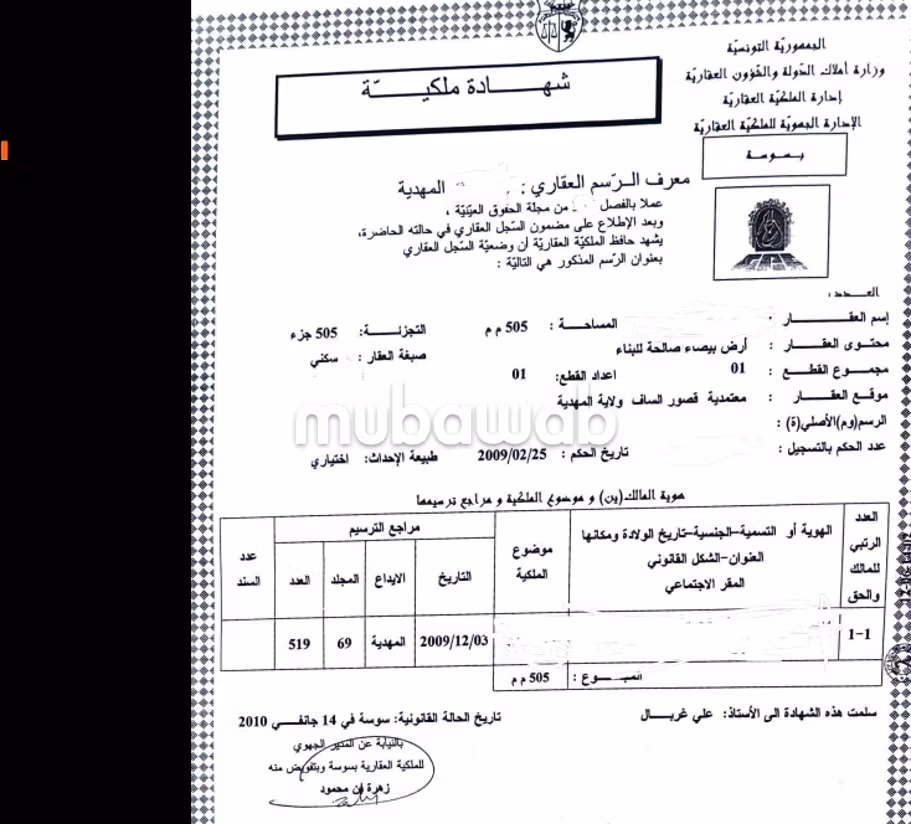 الجمهورية التونسية
وزارة أملاك الدولة والشؤون العقارية
إدارة الملكية العقارية
الإدارة الجهوية للملكية العقارية
بسوسة
شهـــادة ملكيـــة
معرف الرسم العقاري : المهدية
عملا بالفصل من مجلة الحقوق العينية ،
وبعد الإطلاع على مضمون السجل العقاري في حالته الحاضرة،
يشهد حافظ الملكية العقارية أن وضعية السجل العقاري
بعنوان الرسم المذكور هي التالية :
العـــدد :
إسم العقـــار : المساحـــة : 505 م م التجزئـــة: 505 جزء
محتوى العقـــار : أرض بيضاء صالحة للبناء صبغة العقار : سكني
مجموع القطـــع : 01 اعداد القطع: 01
موقع العقـــار : معتمدية قصور الساف ولاية المهدية
mubawab
الرسم(وم)الأصلي(ة) :
عدد الحكم بالتسجيل : تاريخ الحكم : 2009/02/25 طبيعة الإحداث: اختياري
هوية المالك(ين) و موضوع الملكية و مراجع ترسيمها
العدد الرتبي للمالك والحق
الهوية أو التسمية-الجنسية-تاريخ الولادة ومكانها
العنوان-الشكل القانوني
المقر الاجتماعي
موضوع الملكية
مراجع الترسيم
التاريخ الايداع المجلد العدد
عدد السند
1-1 2009/12/03 المهدية 69 519
المجمـــوع : 505 م م
سلمت هذه الشهادة الى الأستاذ: علي غربال تاريخ الحالة القانونية: سوسة في 14 جانفـــي 2010
بالنيابة عن المدير الجهوي
للملكية العقارية بسوسة وبتفويض منه
زهرة بن محمود